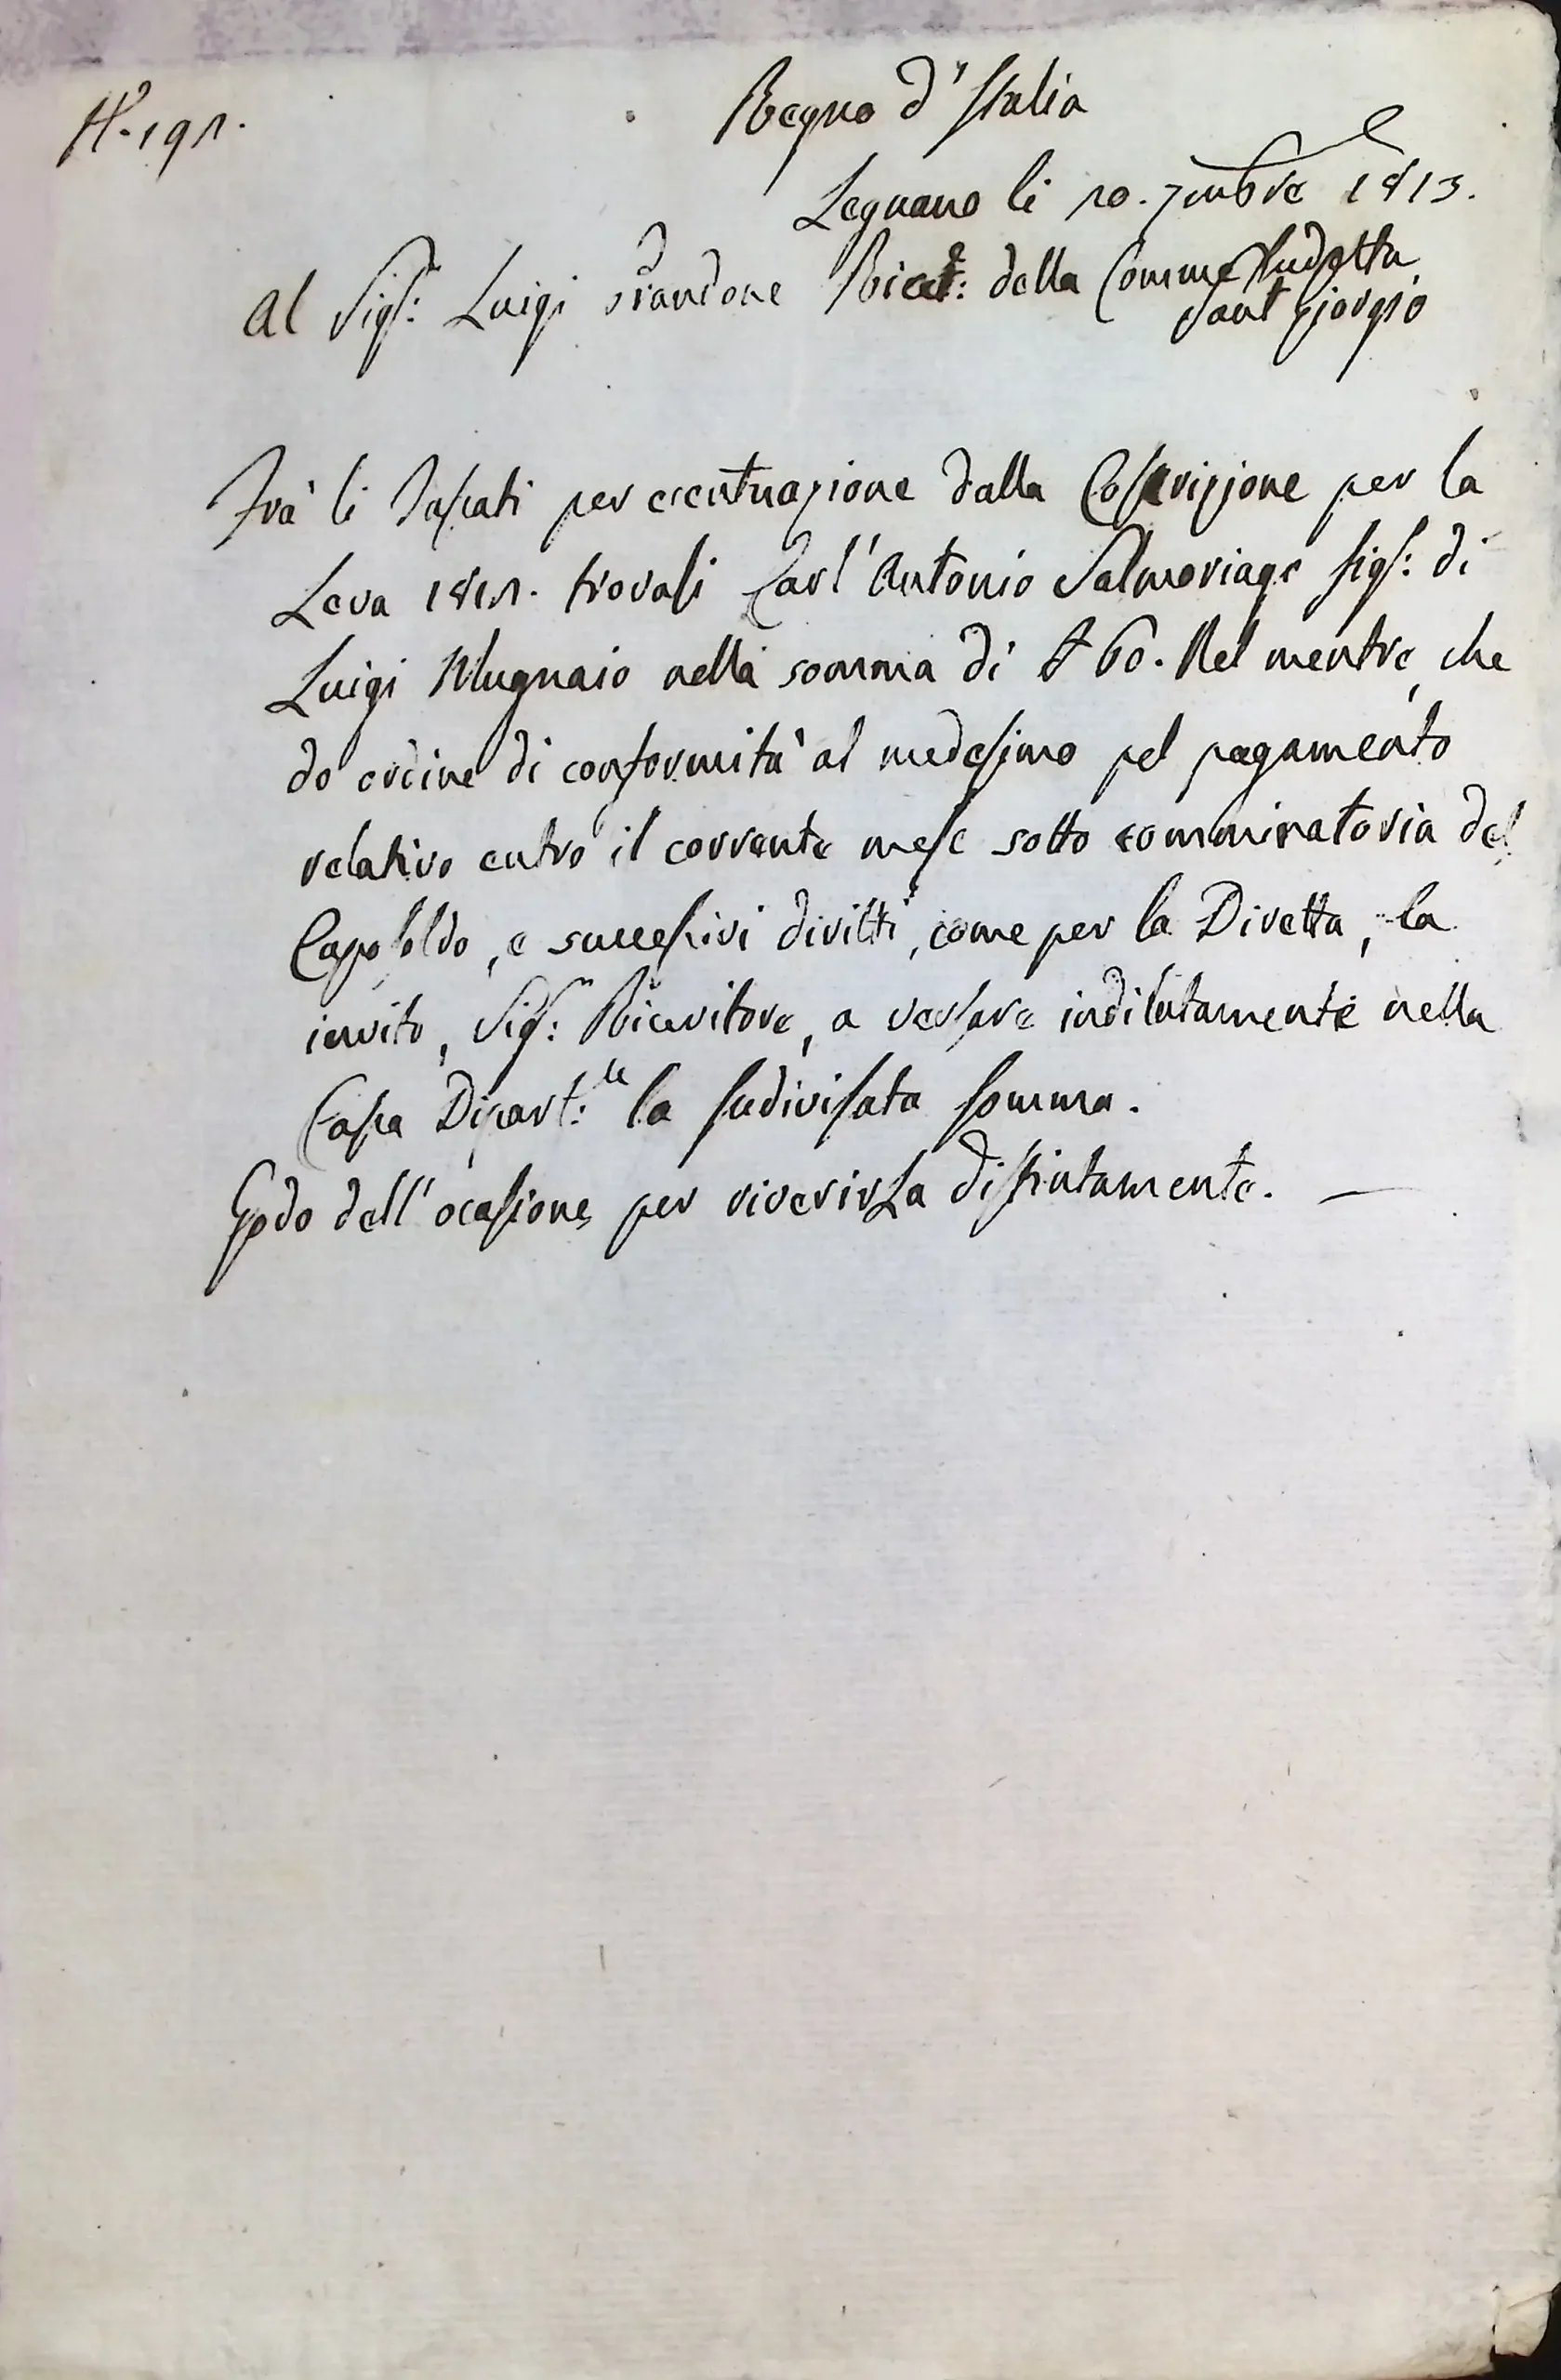 N.° 191.
Regno d'Italia
Legnano li 10. 7mbre 1813.
Al Sigr: Luigi Ricet.e: della Comune Sudetta
Sant Giorgio
Frà li Tassati per eccentuazione dalla Coscrizione per la
Leva 1811. trovasi Carl'Antonio Salmoriage figl: di
Luigi Mugnaio nella somma di £ 60. Nel mentre, che
do ordine di conformità al medesimo pel pagamento
relativo entro il corrente mese sotto comminatoria del
Caposoldo, e successivi diritti, come per la Diretta, la
invito, Sigr: Ricevitore, a versare indilatamente nella
Cassa Dipart:le la sudivisata somma.
Godo dell'ocasione per riverirLa distintamente. —